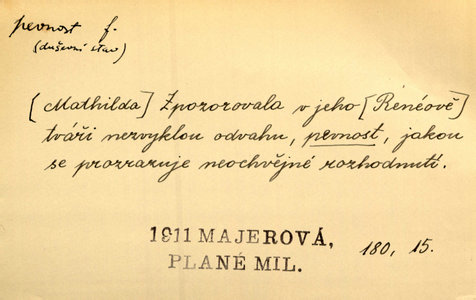 pevnost f.
(duševní stav)
[Mathilda] Zpozorovala v jeho [Rénéově]
tváři nezvyklou odvahu, pevnost, jakou
se prozrazuje neochvějné rozhodnutí.
1911 MAJEROVÁ,
PLANÉ MIL.
180, 15.